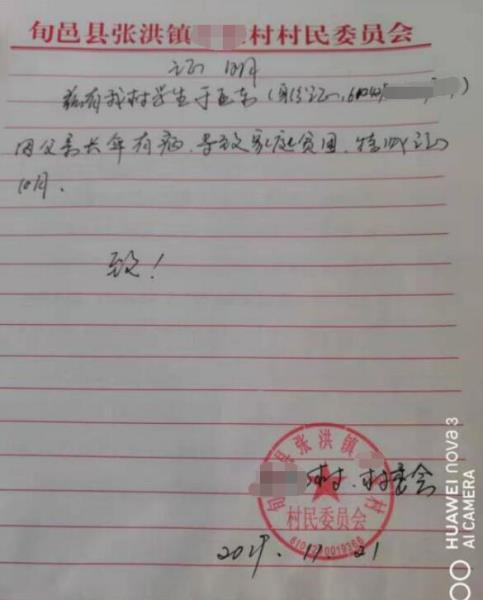 旬邑县张洪镇村村民委员会
证明
兹有我村学生于亚东（身份证,
因父亲长年有病，导致家庭贫困，特此证
明．
致！
旬邑县张洪镇村
村民委员会
村．村委会
11.21
HUAWEI nova 3
AI CAMERA